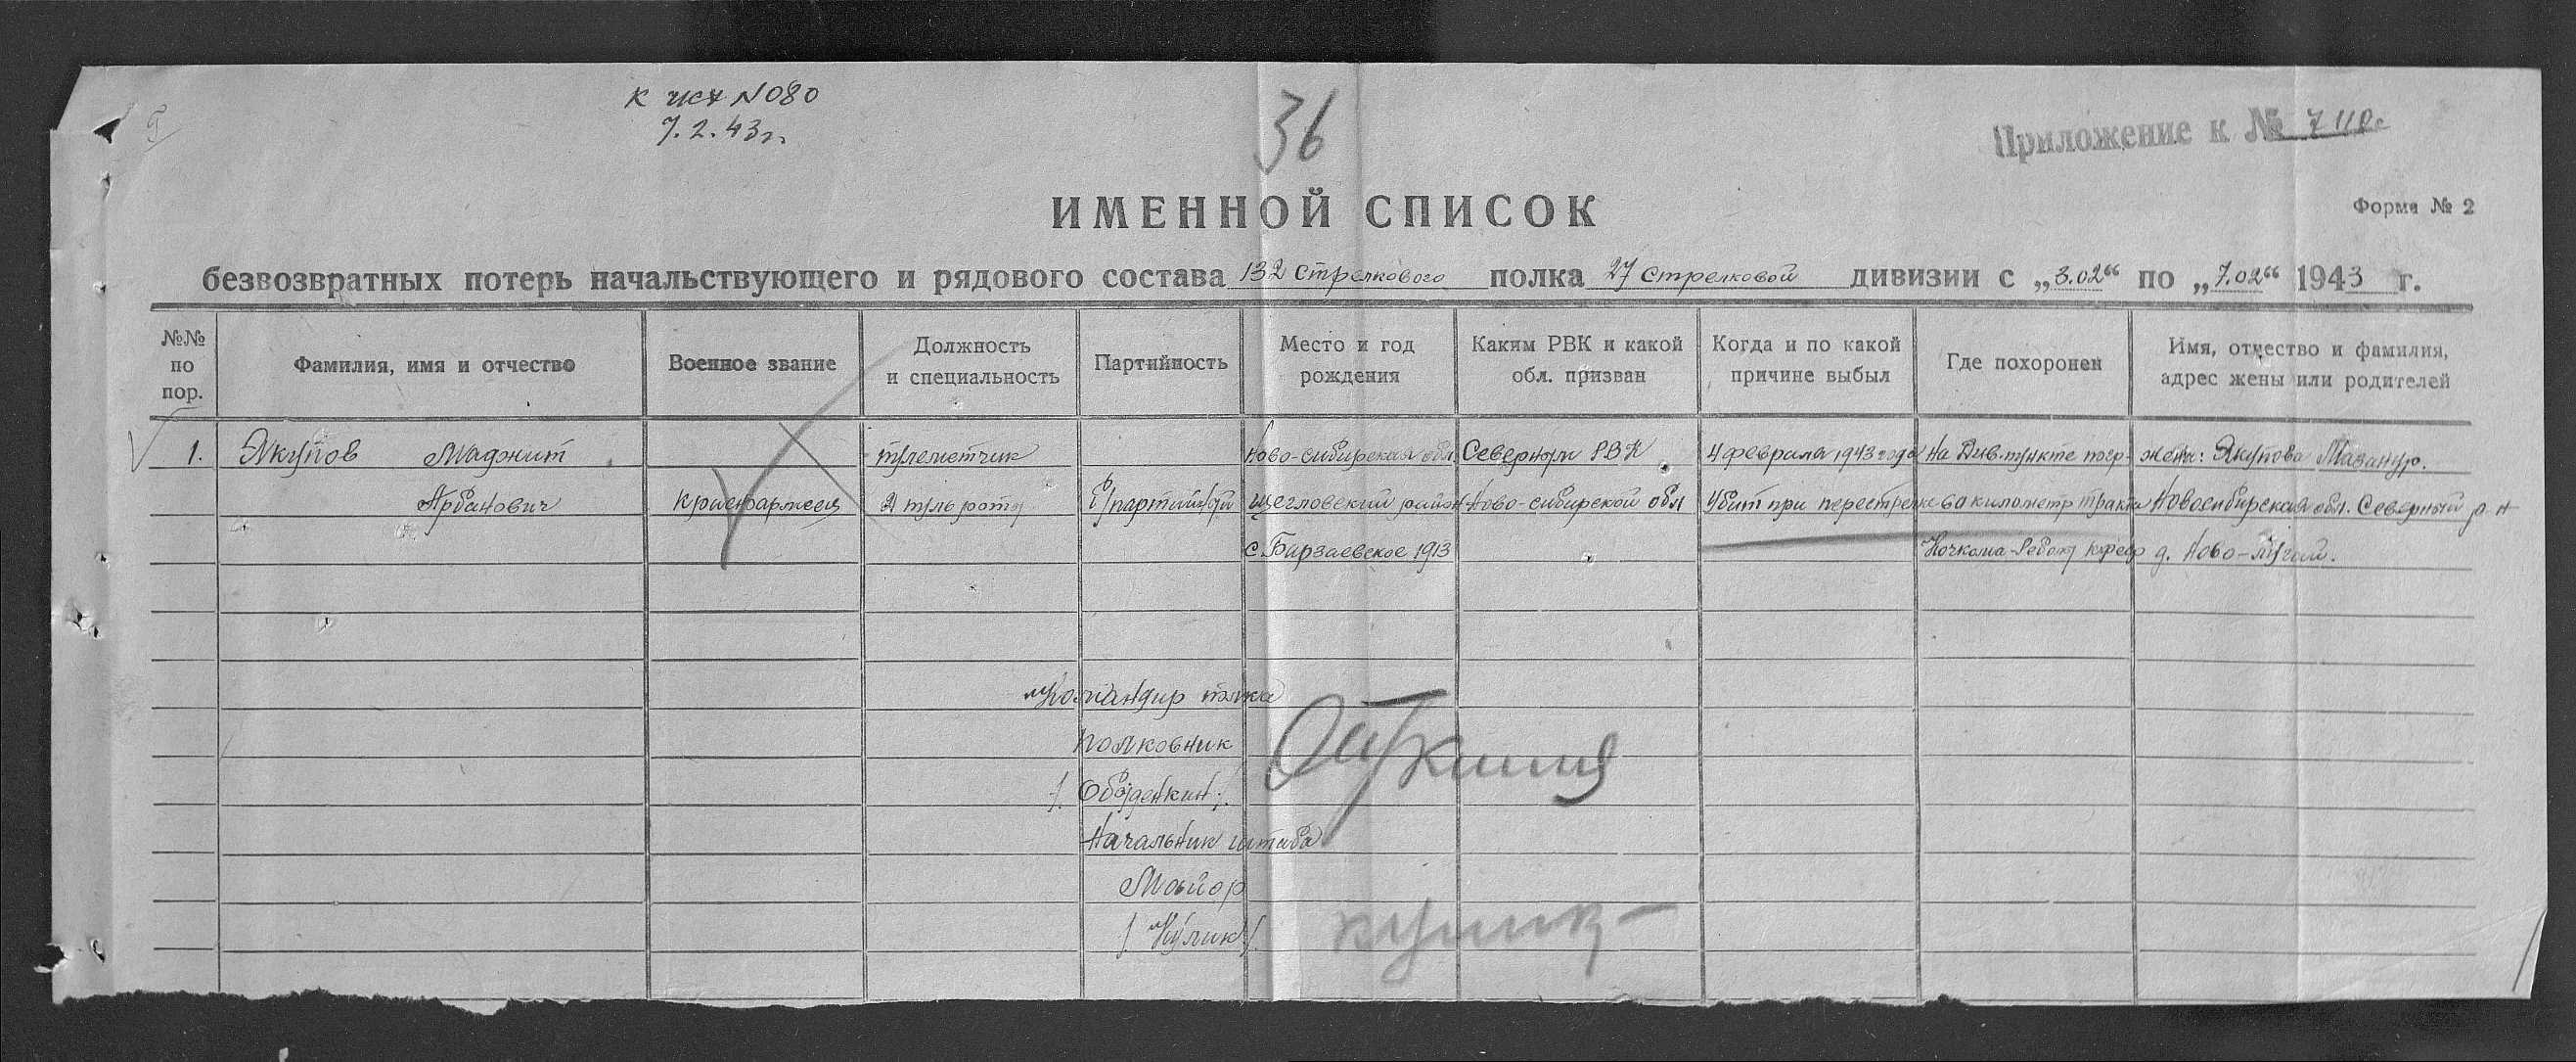 К исх N 080
7.2.43 г.
36
Приложение к № 711с.
ИМЕННОЙ СПИСОК
Форма № 2
безвозвратных потерь начальствующего и рядового состава 132 Стрелкового полка 27 Стрелковой дивизии с „3.02“ по „7.02“ 1943 г.
№№ по пор.
Фамилия, имя и отчество
Военное звание
Должность и специальность
Партийность
Место и год рождения
Каким РВК и какой обл. призван
Когда и по какой причине выбыл
Где похоронен
Имя, отчество и фамилия, адрес жены или родителей
1. Якупов Маджит пулеметчик Ново-сибирская обл Северным РВК 4 февраля 1943 года На Див. пункте погр. жена: Якупова
Арбанович красноармеец 2 пуль рота б/партийный Щегловский район Ново-сибирской обл Убит при перестрелке 60 километр тракта Новосибирская обл. Северный р-н
с. Барзаевское 1913 Кочкома-Реболы д. Ново-
Командир полка
Полковник
/. Обыденкин ./.
Начальник штаба
Майор
/. Кулик /.
Кулик